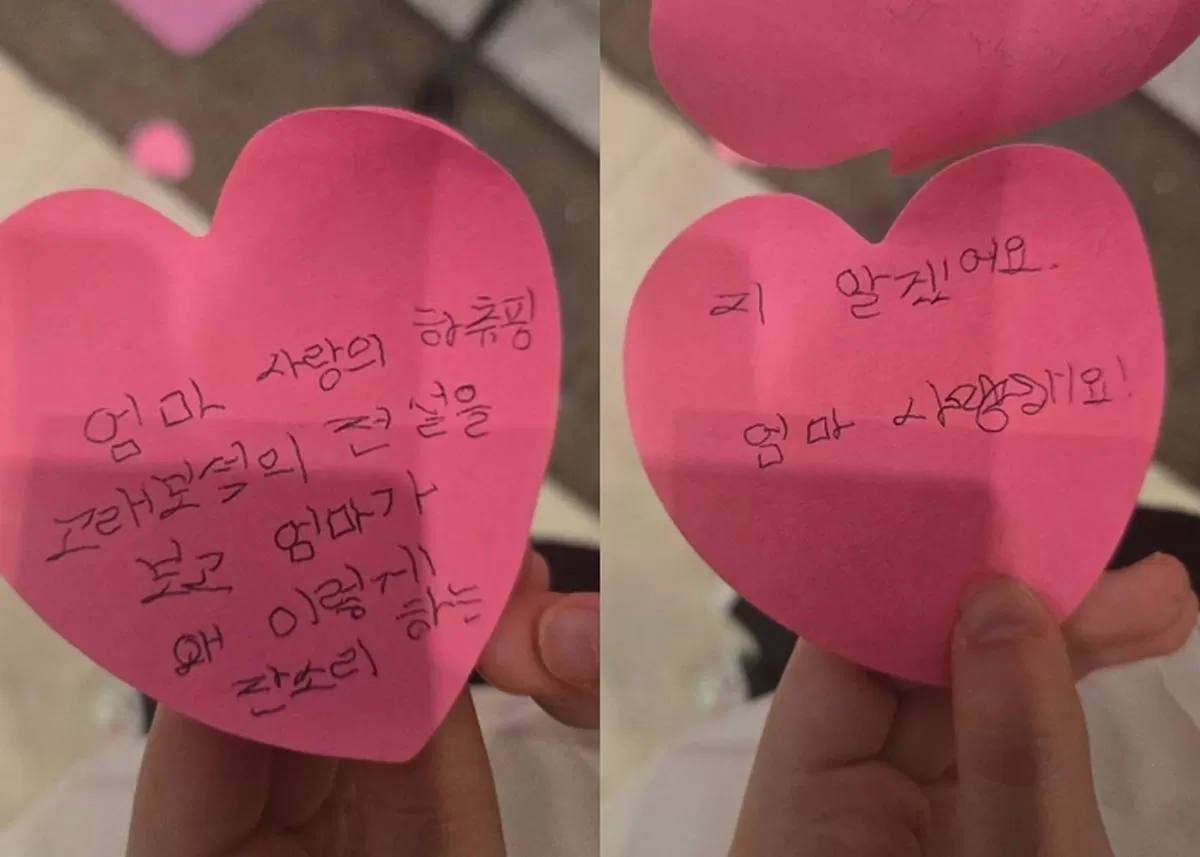 엄마 사랑의 하츄핑
고래보석의 전설을
보고 엄마가
왜 이렇게 하는
잔소리
지 알겠어요.
엄마 사랑해요!